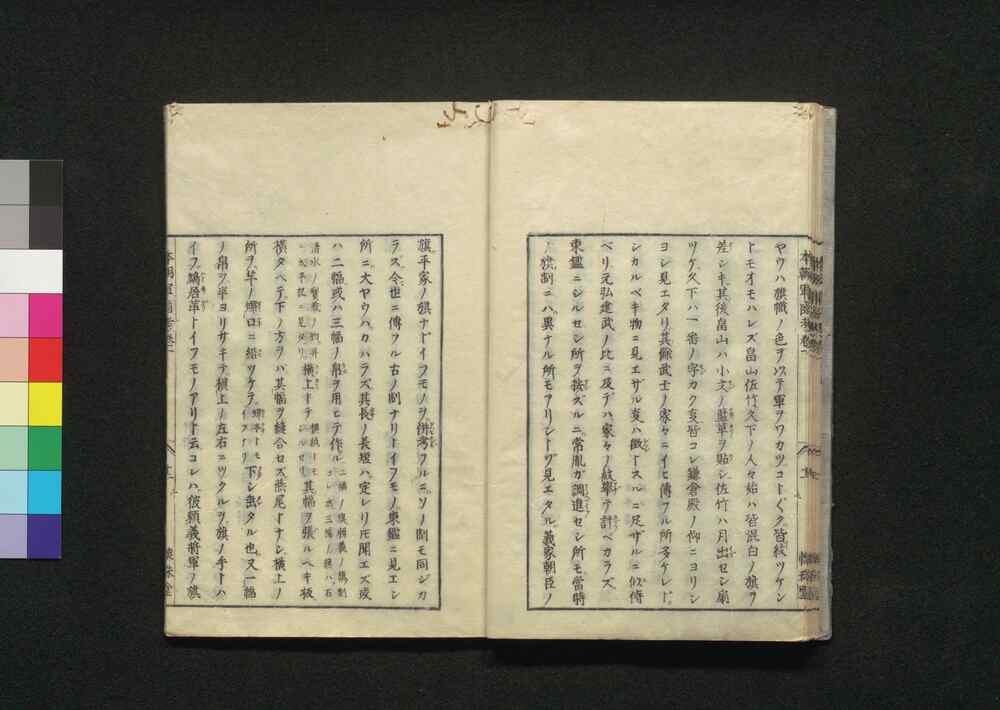 ヤウハ旗幟ノ色ヲ以テ軍ヲワカツコトヽ皆紋ツケン
トモオモハレズ畠山佐竹久下ノ人々始ハ皆混白ノ旗ヲ
差シキ其後畠山ハ小文ノ藍革ヲ貼シ佐竹ハ月出セシ扇
ツケ久下ハ一番ノ字カク支皆コレ鎌倉殿ノ仰ニヨリシ
ヨシ見エタリ其餘武士ノ家々ニイヒ傳フル所多ケレド
シカルベキ物ニ見エザル支ハ徴トスルニ足ザルニ似
ベリ元弘建武ノ比ニ及デハ家々ノ紋擧テ計ベカラズ
東鑑ニシルセシ所ヲ按ズルニ常胤ガ調進セシ所モ當時
ノ旗制ニハ異ナル所モアリシトゾ見エタル義家朝臣ノ
旗平家ノ旗ナドイフモノヲ併考フルニソノ制モ同ジカ
ラス今世ニ傳フル古ノ制ナリトイフモノ東鑑ニ見エシ
所ニ大ヤウハカハラズ其長ノ長短ハ定レリ𪜈聞エズ或
ハ二幅或ハ三幅ノ帛ヲ用ヒテ作ル
横上
其幅ヲ張ルベキ板
横タヘテ下ノ方ヲバ其幅ヲ縫合セズ燕尾トナシ横上ノ
所ヲ竿ノ蟬口ニ結ツケテ
下シ出タル也又一幅
ノ帛ヲ半ヨリサキテ横上ノ左右ニツクルヲ旗ノ手トハ
イフ鶉居革トイフモノアリト云コレハ彼頼義將軍ノ旗